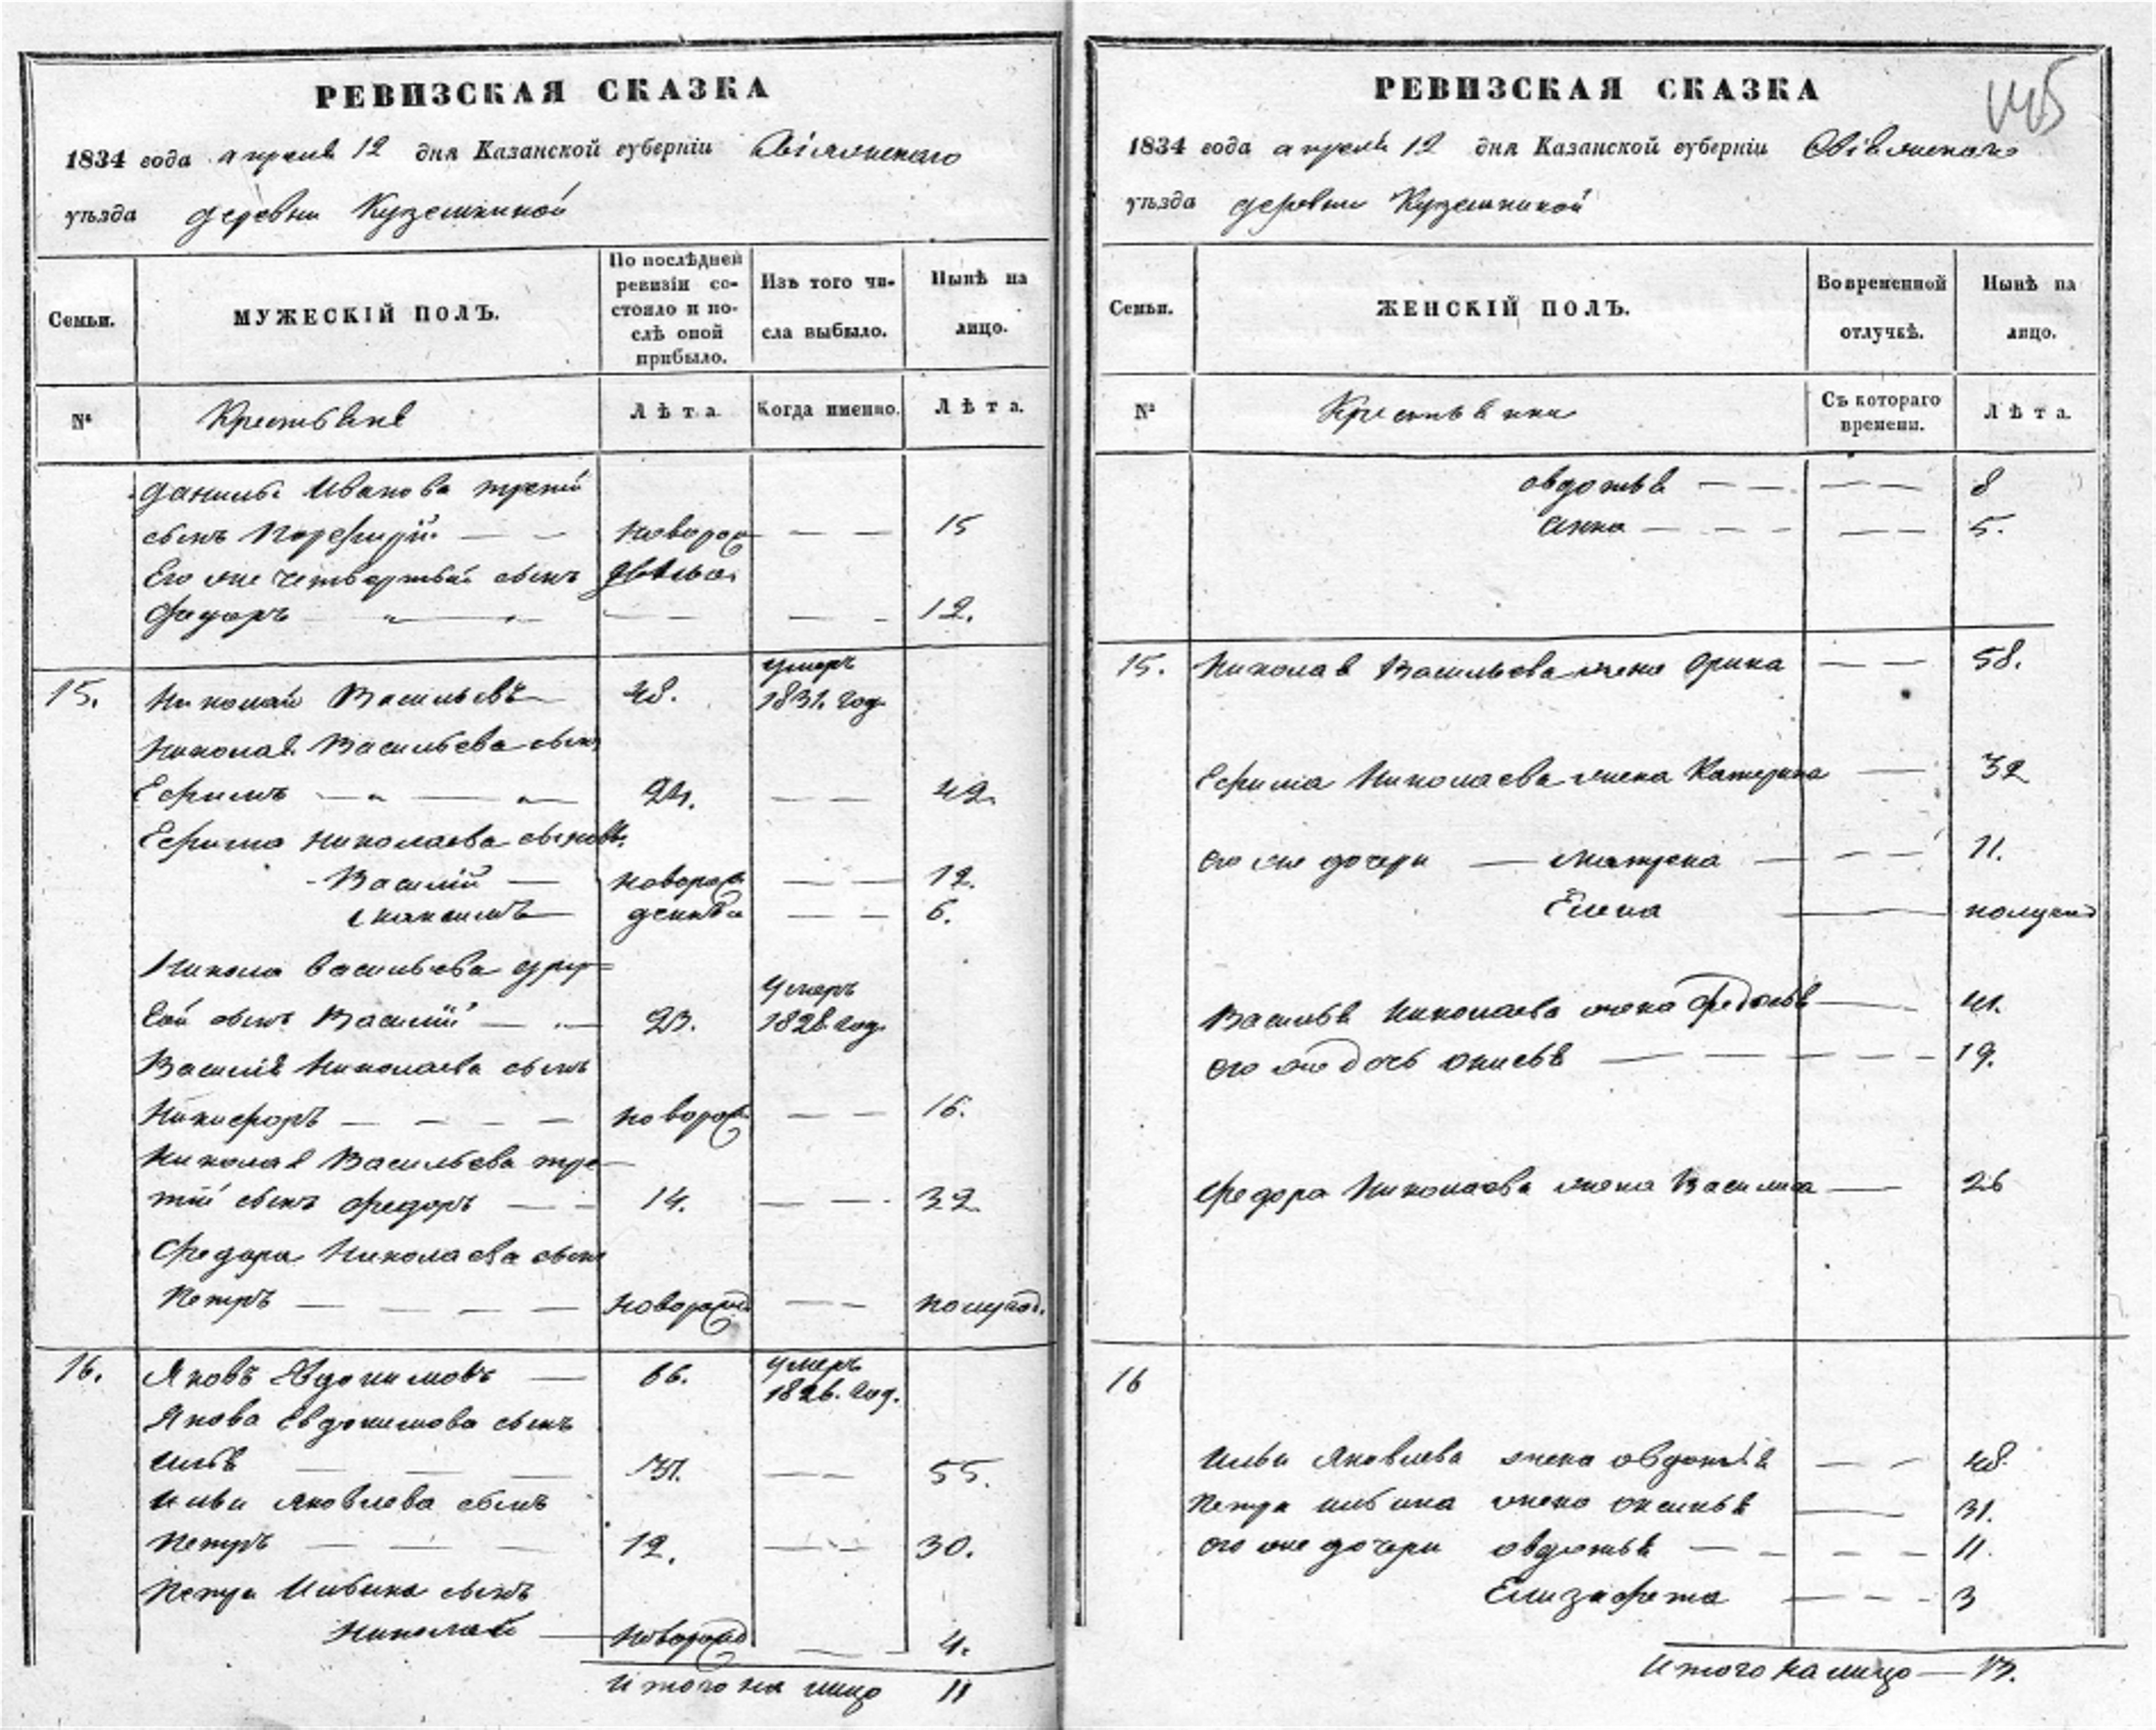 РЕВИЗСКАЯ СКАЗКА
1834 года апреля 12 дня Казанской губерніи Свіяжскаго
уѣзда деревни Куземкиной
Семьи.
МУЖЕСКІЙ ПОЛЪ.
По послѣдней
ревизіи со-
стояло и по-
слѣ оной
прибыло.
Изъ того чи-
сла выбыло.
Нынѣ на
лицо.
№
Крестьяне
Лѣта.
Когда именно.
Лѣта.
Данилы Иванова третій
сынъ Порфирій — — новорож — — 15
Его же четвертый сынъ
Федоръ — — — — 12.
15. Николай Васильевъ 48. умеръ
1831. год
Николая Васильева сынъ
Ефимъ — — 24. — — 42.
Ефима Николаева сыновья
Василій — новорож — — 12.
Максимъ — — — 6.
Никола Васильева дру-
гой сынъ Василій — — 23. умеръ
1828 год
Василія Николаева сынъ
Никифоръ — — — — новорож — — 16.
Николая Васильева тре-
тій сынъ Федоръ — — 14. — — 32
Федора Николаева сынъ
Петръ — — — — новорожд — — полугод.
16. Яковъ Евдокимовъ — 66. умеръ
1826. год.
Якова Евдокимова сынъ
Илья — — — 37. — — 55.
Ильи Яковлева сынъ
Петръ — — — 12. — — 30.
Петра Ильина сынъ
Николай — новорожд — — 4.
Итого на лицо 11
РЕВИЗСКАЯ СКАЗКА
1834 года апреля 12 дня Казанской губерніи Свіяжскаго
уѣзда деревни Куземкиной
Семьи.
ЖЕНСКІЙ ПОЛЪ.
Во временной
отлучкѣ.
Нынѣ на
лицо.
№
Крестьянки
Съ котораго
времени.
Лѣта.
Овдотья — — — — 8
Анна — — — — — 5.
15. Николая Васильева жена Орина — — 58.
Ефима Николаева жена Катерина — 32
Его же дочери — Матрена — — — 11.
Елена — полугод
Василья Николаева жена Федосья — 41.
Его же дочь Окисья — — — — — 19.
Федора Николаева жена Василиса — 26
16
Ильи Яковлева жена Овдотья — — 48.
Петра Ильина жена Оксинья — 31.
Его же дочери Овдотья — — — — 11.
Елизафета — — — 3
Итого на лицо — 13.